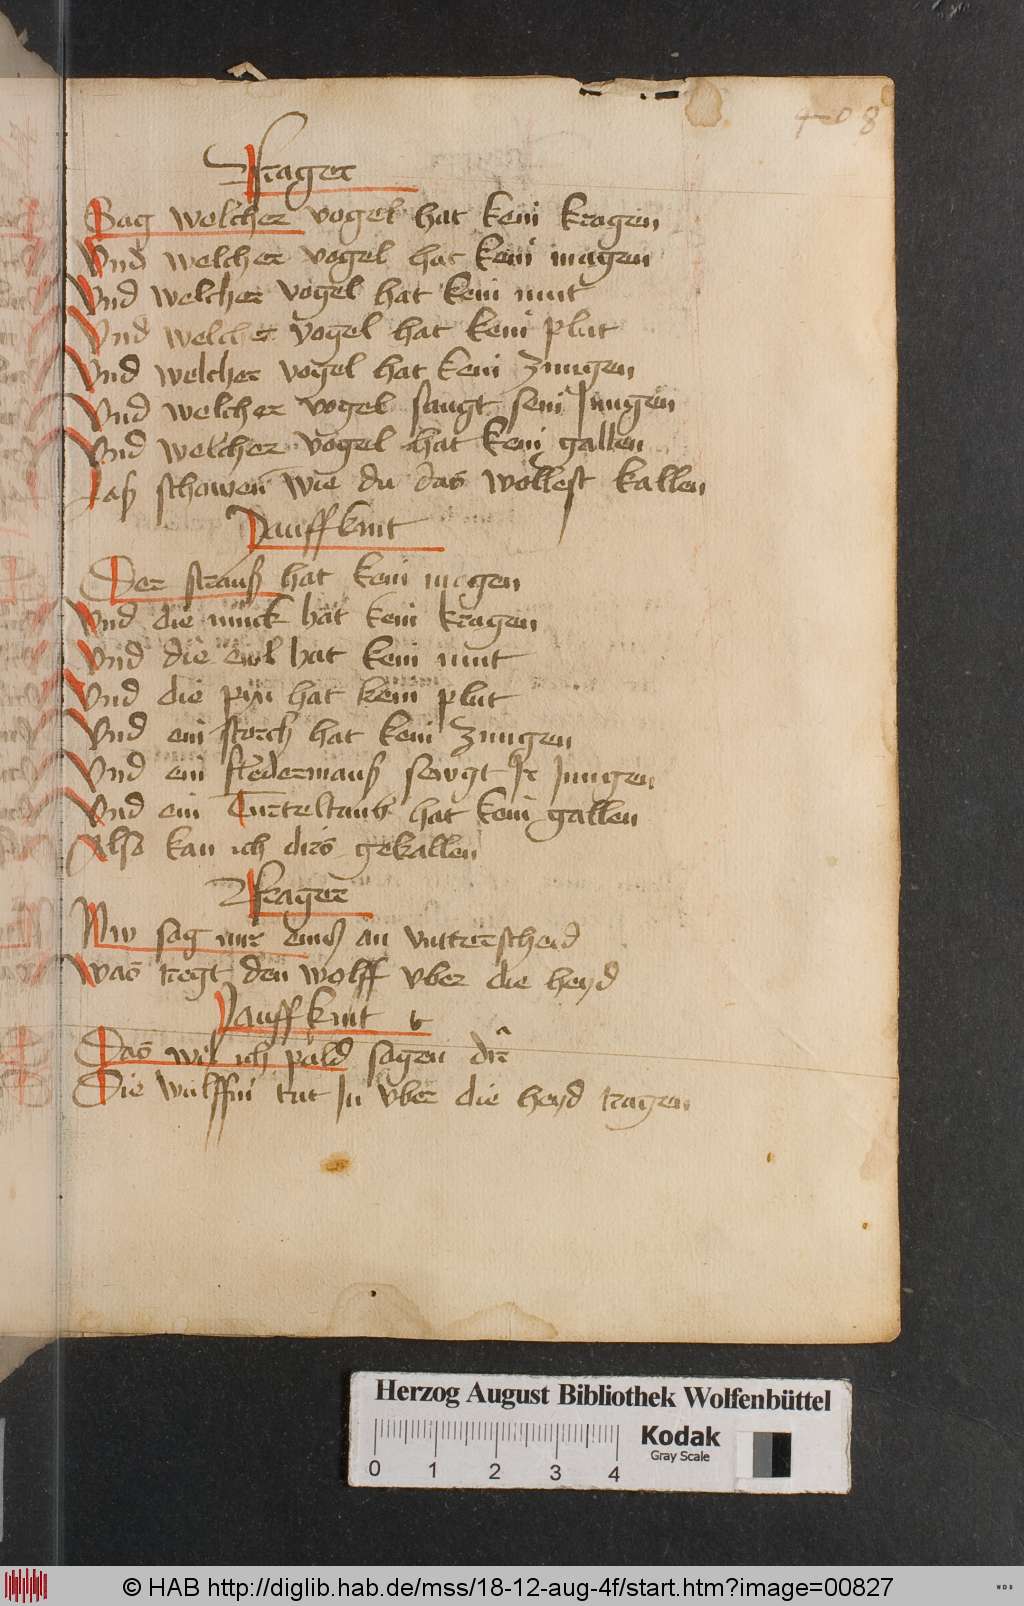 408
Frager
Sag welcher vogel hat kein kragen
Vnd welcher vogel hat kein magen
Vnd welcher vogel hat kein mut
Vnd welcher vogel hat kein plut
Vnd welcher vogel hat kein zungen
Vnd welcher vogel saugt sein Jungen
Vnd welcher vogel hat kein gallen
Laß schawen wie du das wöllest kallen
Lauffkint
Der strauß hat kein magen
Vnd die muck hat kein kragen
Vnd die ewl hat kein mut
Vnd die pyn hat kein plut
Vnd ein storch hat kein zungen
Vnd ein fledermauß sewgt Ir Jungen
Vnd ein Turteltaub hat kein gallen
Also kan ich dirs gekallen
Frager
Nw sag mir einß an vntterscheid
Was tregt den wolff vber die heyd
Lauffkint
Das wil ich pald sagen dir
Die wulffin tut In vber die heyd tragen
Herzog August Bibliothek Wolfenbüttel
Kodak
Gray Scale
0 1 2 3 4
© HAB http://diglib.hab.de/mss/18-12-aug-4f/start.htm?image=00827